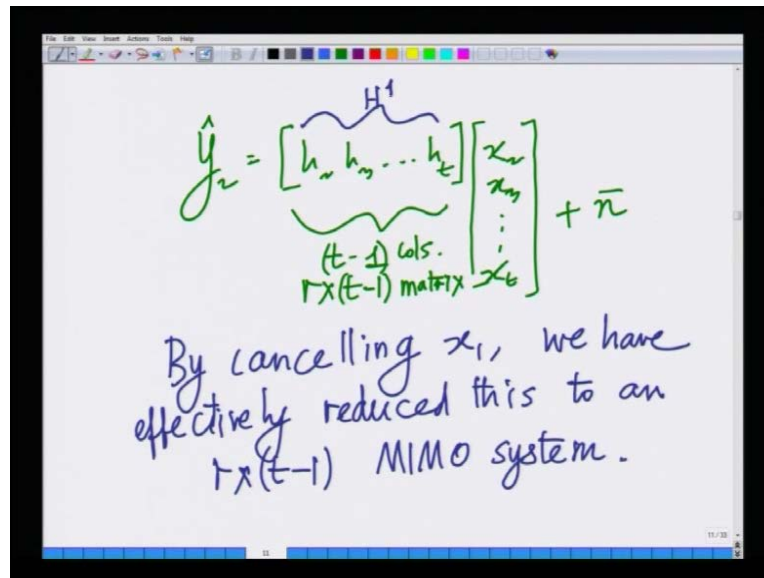 File Edit View Insert Actions Tools Help
H¹
ŷ₂ = [h₂ h₃ ... h_t] [x₂ x₃ ⋮ x_t] + n̄
(t-1) cols.
r×(t-1) matrix
By cancelling x₁, we have
effectively reduced this to an
r×(t-1) MIMO system.
11/33
11